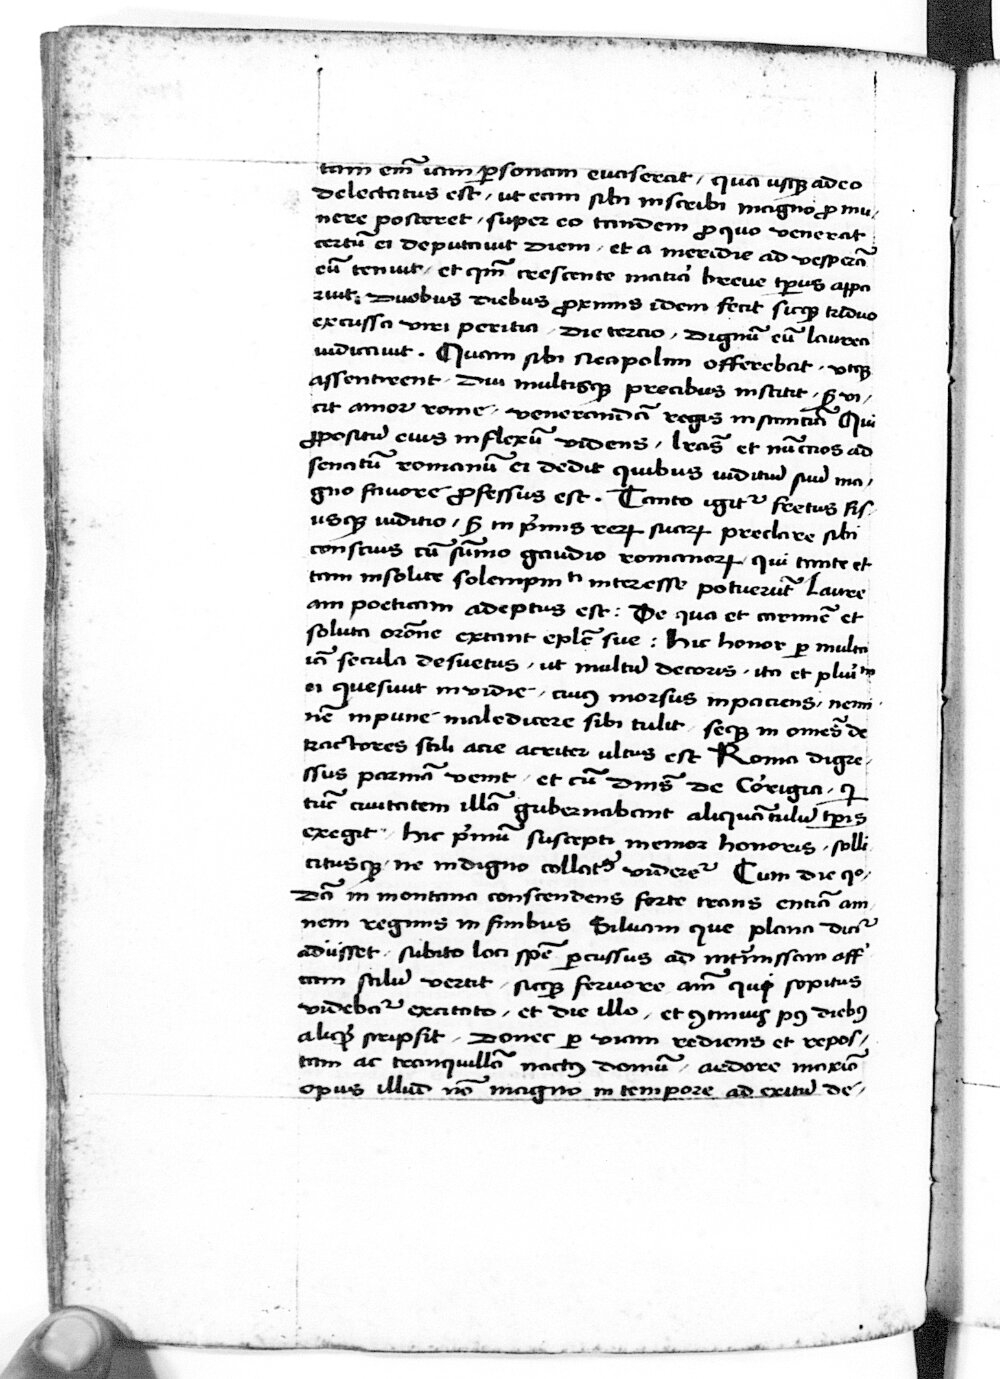 tam em̅ iam ꝑsonam evaserat / qua usqꝫ adeo
delectatus est / ut eam sibi inscribi magno ꝓ mu/
nere posceret / super eo tandem ꝓ quo venerat
certu̅ ei deputavit diem / et a meridie ad vespera̅
eu̅ tenuit / et qm̅ crescente materia̅ breve tp̅us appa
ruit: Duobus diebus ꝓximis idem fecit sicqꝫ triduo
excussa viri peritia / die tercio / dignu̅ eu̅ laurea
iudicavit . Quam sibi neapolim offerebat / utqꝫ
assentiret / diu multisqꝫ precibus institit / sꝫ vi/
cit amor rome / veneranda̅ regis instantia̅ Qui
ꝓpositu̅ eius inflexu̅ videns / lr̅as et nu̅ctios ad
senatu̅ romanu̅ ei dedit quibus iuditiu̅ suu̅ ma/
gno favore ꝓfessus est . Tanto igit᷑ fretus si/
usqꝫ iuditio / sꝫ in p̅mis reꝝ suaꝝ preclare sibi
conscius cu̅ su̅mo gaudio romanoꝝ / qui tante et
tam insolite solempniti interesse potueru̅t Laure
am poeticam adeptus est : De qua et carmine̅ et
soluta oro̅ne extant ep̅le sue : hic honor ꝑ multa
ia̅ secula desuetus / ut multu̅ decoris / ita et plurimu̅
ei quesivit invidie / cuiꝰ morsus inpaciens / nemi
ne̅ inpune maledicere sibi tulit / seqꝫ in omes̅ de
tractores stili acie acriter ultus est Roma digre/
ssus parma̅ venit / et cu̅ dn̅is de Corrigia / qi
tu̅c civitatem illa̅ gubernabant aliqua̅tulu̅ tp̅is
exegit / hic p̅mu̅ suscepti memor honoris / solli
citusqꝫ / ne indigno collatꝰ videre᷑ Cum die qo/
da̅ in montana conscendens forte trans entia̅ am
nem reginis in finibus Siluam que plana dici᷑
adiisset / subito loci spe̅ ꝑcussus ad int̅missam aff̅
cam stilu̅ vertit / sicqꝫ fervore ami̅ qui sopitus
videba᷑ excitato / et die illo / et ꝯtinuis pꝰ diebꝰ
aliqd̅ scripsit / Donec ꝑ viam rediens et repos/
tam ac tranquilla̅ nactꝰ domu̅ / ardore maxio̅
opus illud no̅ magno in tempore ad exitu̅ de/